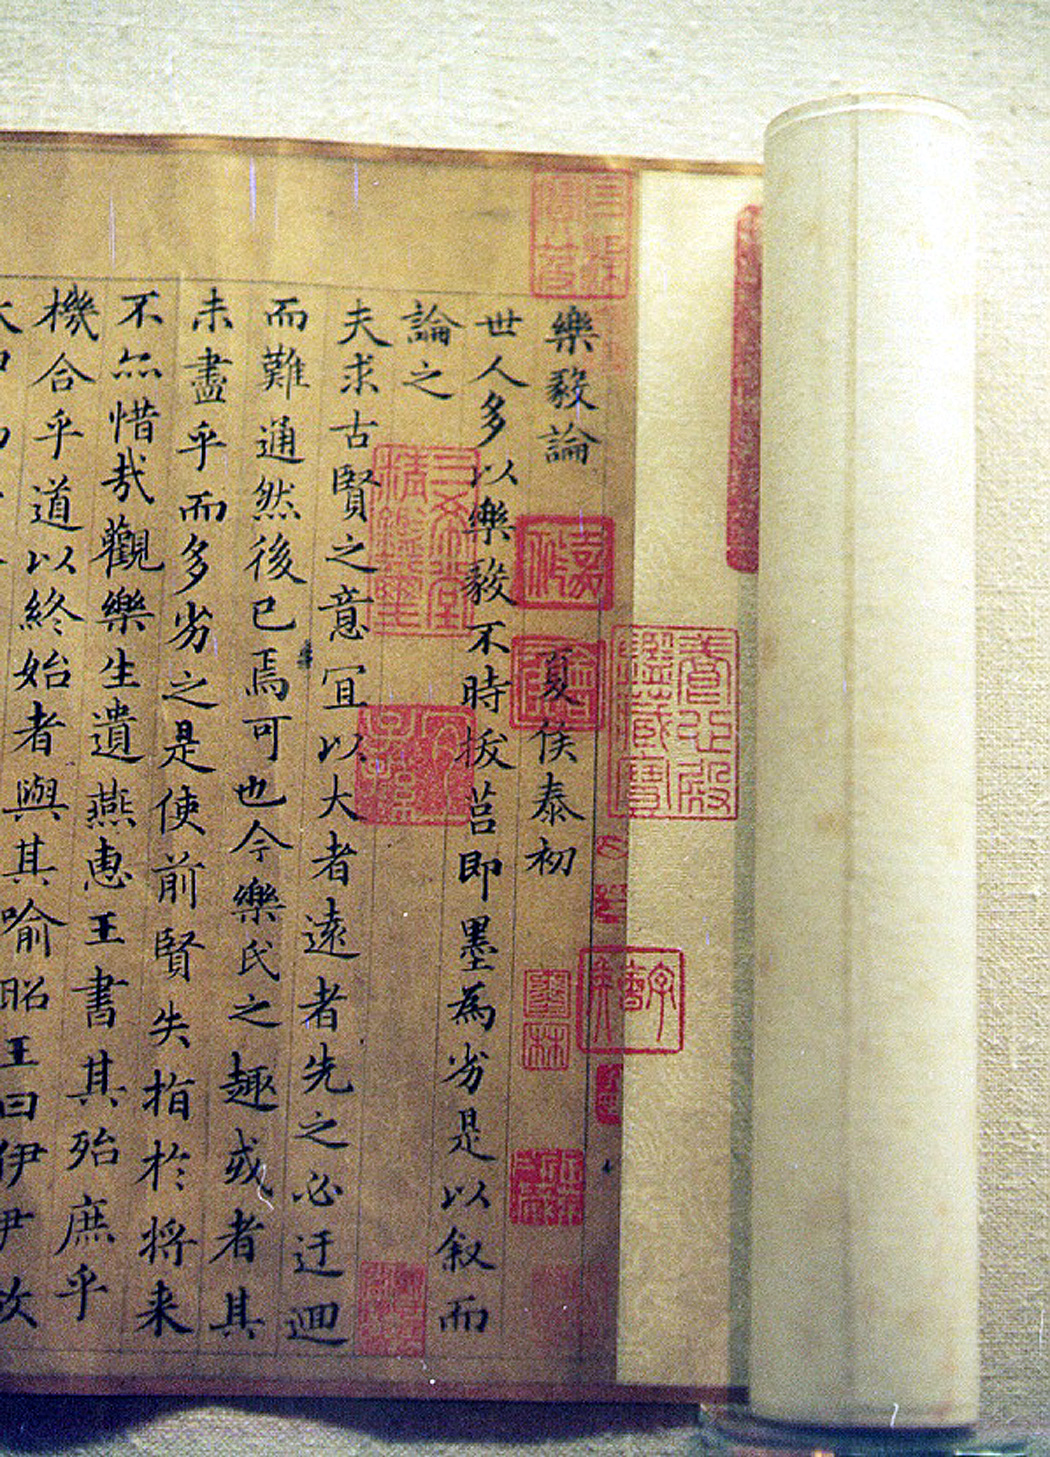 樂毅論 夏侯泰初
世人多以樂毅不時拔莒即墨為劣是以叙而
論之
夫求古賢之意冝以大者遠者先之必迂迴
而難通然後已焉可也今樂氏之趣或者其
未盡乎而多劣之是使前賢失指於将来
不亦惜哉觀樂生遺燕惠王書其殆庶乎
機合乎道以終始者與其喻昭王曰伊尹放
養心殿鑑藏寶
三希堂精鑑璽